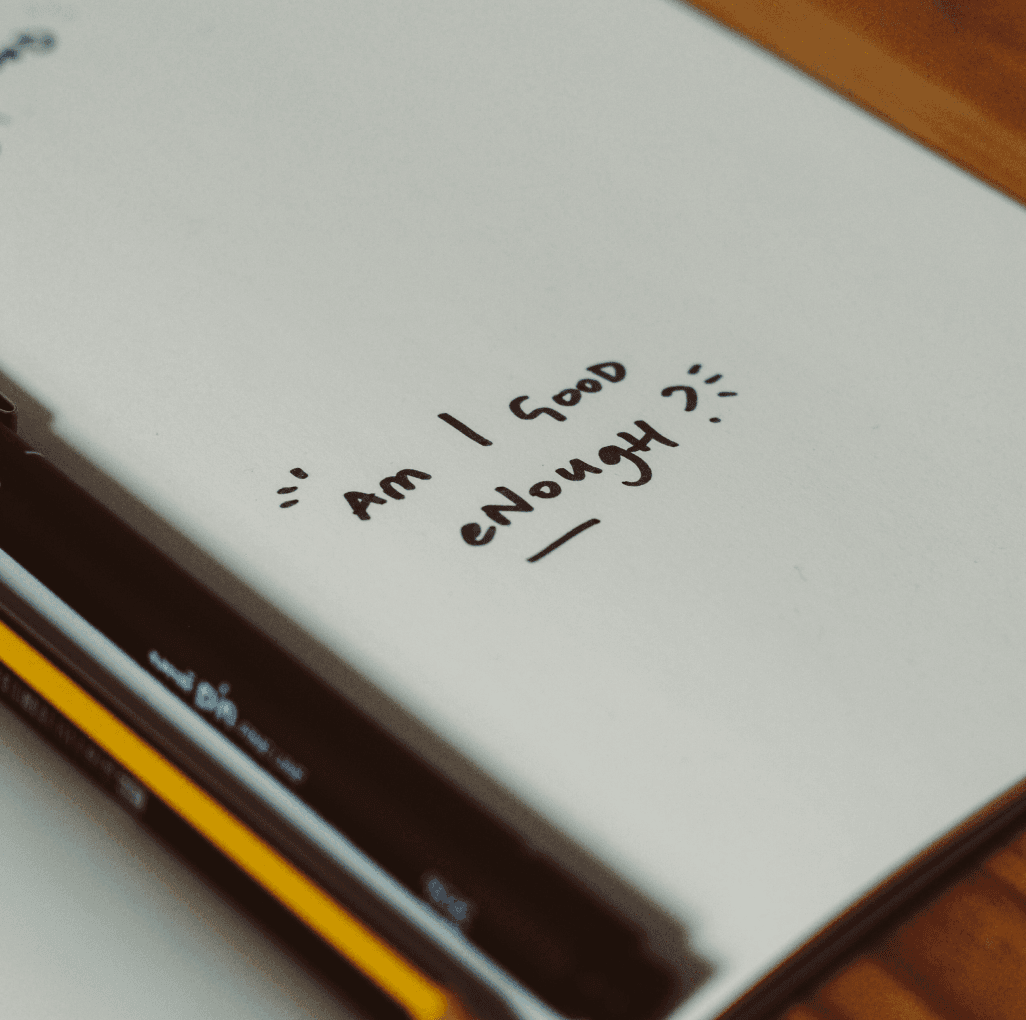 Am I GooD
eNougH?